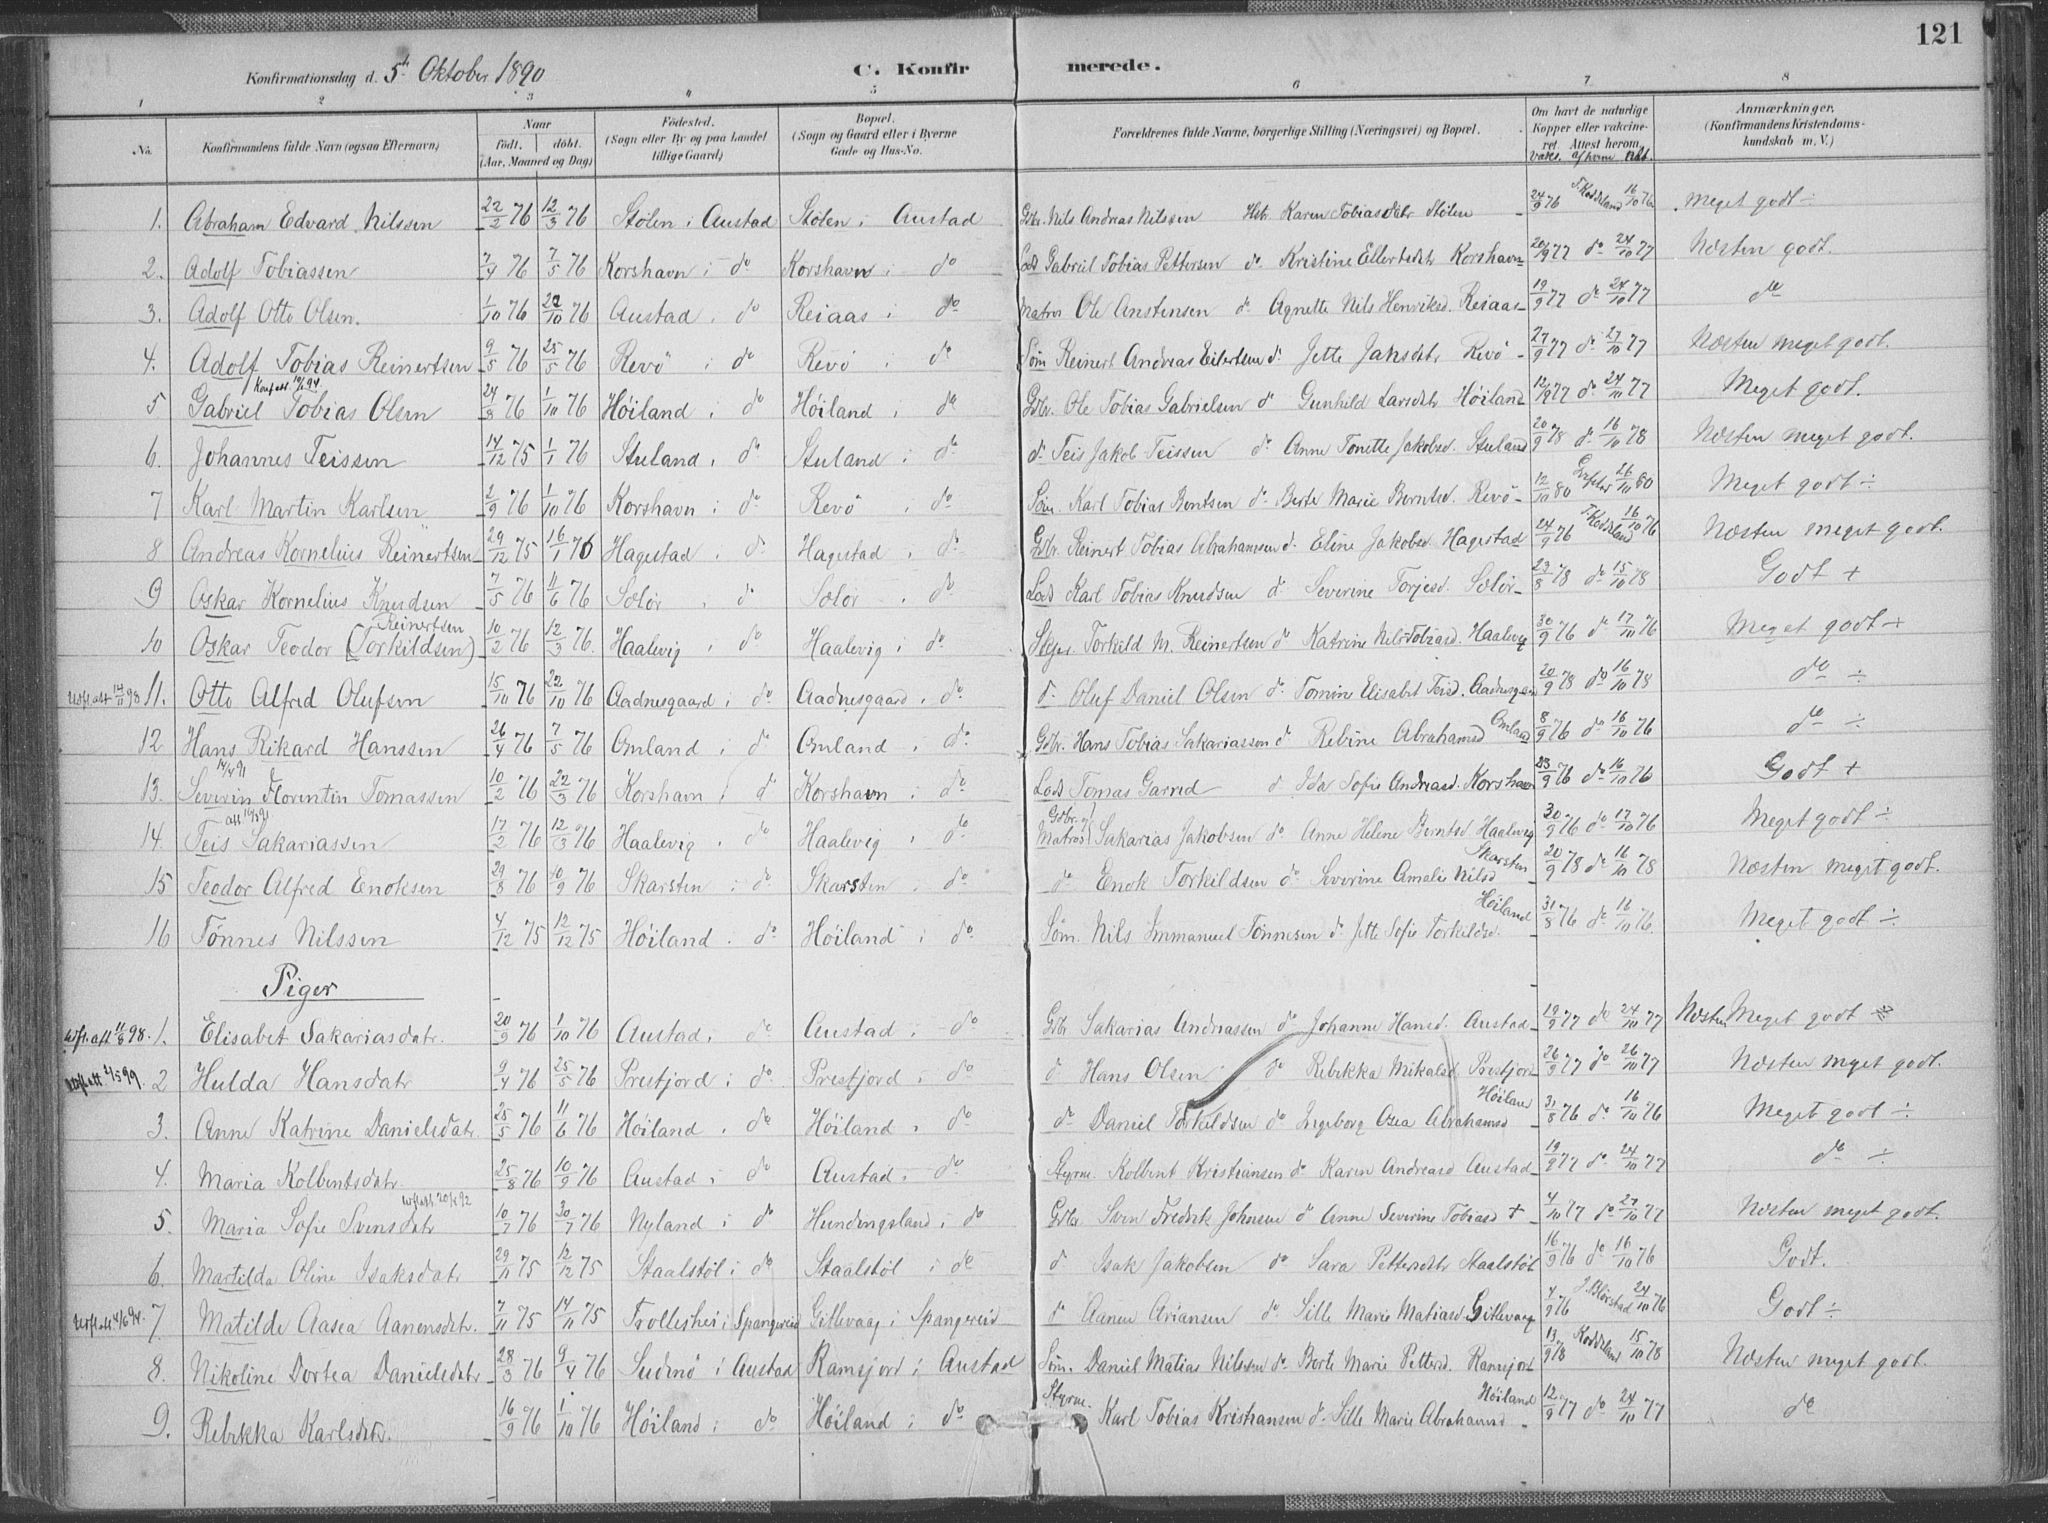 121
Konfirmationsdag d. 5te Oktober 1890 C. Konfirmerede.
1 2 3 4 5 6 7 8
No. Konfirmandens fulde Navn (ogsaa Efternavn) Naar födt. döbt. (Aar, Maaned og Dag) Födested. (Sogn eller By og paa Landet tillige Gaard) Bopæl. (Sogn og Gaard eller i Byerne Gade og Hus-No. Forældrenes fulde Navne, borgerlige Stilling (Næringsvei) og Bopæl. Om havt de naturlige Kopper eller vakcineret. Attest herom. Vakc. af hvem Att. Anmærkninger. (Konfirmandens Kristendomskundskab m. V.)
1. Abraham Edvard Nilssen 22/2 76 12/3 76 Stølen i Austad Stølen i Austad Gdbr. Nils Andreas Nilssen Hstr. Karen Tobiasdatr Stølen 24/9 76 T. Koddeland 16/10 76 Meget godt ÷
2. Adolf Tobiassen 7/4 76 7/5 76 Korshavn i do Korshavn i do Lods Gabriel Tobias Pettersen do Kristine Ellertsdtr Korshavn 20/9 77 do 24/10 77 Næsten godt.
3. Adolf Otto Olsen. 1/10 76 22/10 76 Austad i do Reiaas i do Matros Ole Anstensen do Agnette Nils Henriksd. Reiaas 19/9 77 do 24/10 77 do
4. Adolf Tobias Reinertsen 9/5 76 25/5 76 Revö i do Revö i do Söm Reinert Andreas Eilertsen do Jette Jaksdatr Revö 27/9 77 do 27/10 77 Næsten meget godt.
5 Gabriel Tobias Olsen 24/8 76 1/10 76 Höiland i do Höiland i do Gdbr. Ole Tobias Gabrielsen do Gunhild Larsdtr Höiland 12/9 77 do 24/10 77 Meget godt.
6. Johannes Teissen 14/12 75 1/1 76 Stuland i do Stuland i do do Teis Jakob Teissen do Anne Tonette Jakobsd. Stuland 20/9 78 do 16/10 78 Næsten meget godt.
7 Karl Martin Karlsen 2/9 76 1/10 76 Korshavn i do Revö i do Söm. Karl Tobias Berntsen do Berte Marie Berntsd. Revö 12/10 80 26/10 80 Meget godt ÷
8 Andreas Kornelius Reinertsen 29/12 75 16/1 76 Hagestad i do Hagestad i do Gdbr. Reinert Tobias Abrahamsen do Eline Jakobsd. Hagestad 24/9 76 T. Koddeland 16/10 76 Næsten meget godt.
9 Oskar Kornelius Knudsen 7/5 76 11/6 76 Sælör i do Sælör i do Lods Karl Tobias Knudsen do Severine Torjesd. Sælör 23/8 78 do 15/10 78 Godt +
10 Oskar Teodor (Torkildsen) Reinertsen 10/2 76 12/3 76. Haalevig i do Haalevig i do Torkeld M. Reinertsen do Katrine Nils Tobiasd. Haalevig 30/9 76 do 17/10 76 Meget godt ÷
Udfl. att 14/11 98 11. Otto Alfred Olufsen 15/10 76 22/10 76 Aadnesgaard i do Aadnesgaard i do do Oluf Daniel Olsen do Tomine Elisabet Teisd. Aadnesgaard 20/9 78 do 16/10 78 do ÷
12 Hans Rikard Hanssen 26/4 76 7/5 76 Omland i do Omland i do Gdbr. Hans Tobias Sakariassen do Rebine Abrahamsd Omland 8/9 76 do 16/10 76 do ÷
13. Severin Florentin Tomassen 10/2 76 22/3 76 Korshavn i do Korshavn i do Lods Tomas Garred do Ida Sofie Andreasd. Korshavn 23/9 76 do 16/10 76 Godt +
14. Teis Sakariassen 17/2 76 12/3 76 Haalevig i do Haalevig i do Gdbr. og Matros Sakarias Jakobsen do Anne Helene Berntsd Haalevig 30/9 76 do 17/10 76 Meget godt ÷
15 Teodor Alfred Enoksen 29/8 76 10/9 76 Skarsten i do Skarsten i do do Enok Torkildsen do Severine Amalie Nilsd Skarsten 20/9 78 do 16/10 78 Næsten meget godt.
16 Tönnes Nilssen 4/12 75 12/12 75 Höiland i do Höiland i do Söm. Nils Immanuel Tönnesen do Jette Sofie Torkildsd. Höiland 31/8 76 do 16/10 76. Meget godt ÷
Piger
Udfl. att 11/8 98. 1. Elisabet Sakariasdatr. 20/9 76 1/10 76 Austad i do Austad i do Gdbr Sakarias Andreassen do Johanne Hansd. Austad 19/9 77 do 24/10 77 Næsten Meget godt
Udfl. att 2/5 99. 2 Hulda Hansdatr 9/4 76 25/5 76 Prestjord i do Prestjord i do do Hans Olsen do Rebekka Mikalsd Prestjord 26/9 77 do 26/10 77 Næsten meget godt.
3. Anne Katrine Danielsdatr. 25/5 76 11/6 76 Höiland i do Höiland i do do Daniel Torkildsen do Ingeborg Asea Abrahamsd Höiland 31/8 76 do 16/10 76 Meget godt ÷
4. Maria Kolbentsdatr. 25/8 76 10/9 76 Austad i do Austad i do Styrm. Kolbent Kristiansen do Karen Andreasd Austad 19/9 77 do 24/10 77 do ÷
5. Maria Sofie Svensdatr 10/7 76 30/7 76 Nyland i do Hundingsland i do Gdbr Sven Fredrik Johnsen do Anne Severine Tobiasd + 4/10 77 do 27/10 77 Næsten meget godt.
6. Martilda Oline Isaksdatr 29/11 75 12/12 75 Staalstöl i do Staalstöl i do do Isak Jakobsen do Sara Pettersdtr Staalstöl 16/9 76 do 16/10 76 Godt.
Udfl. att 4/6 94. 7 Matilde Aasea Aanensdtr. 7/11 75 14/11 75 Trolleshei i Spangereid Gitlevaag i Spangereid do Aanen Ariansen do Sille Marie Matiasd Gitlevaag 4/9 76 24/10 76 Godt ÷
8. Nikoline Dortea Danielsdatr 28/3 76 9/4 76 Sudmø i Austad Ramsjord i Austad Söm. Daniel Matias Nilssen do Berte Marie Pettersd. Ramsjord 13/9 78 Koddeland 15/10 78 Næsten meget godt.
9. Rebekka Karlsdtr. 16/9 76 1/10 76 Höiland i do Höiland i do Styrm. Karl Tobias Kristiansen do Sille Marie Abrahamsd Höiland 12/9 77 do 24/10 77 do